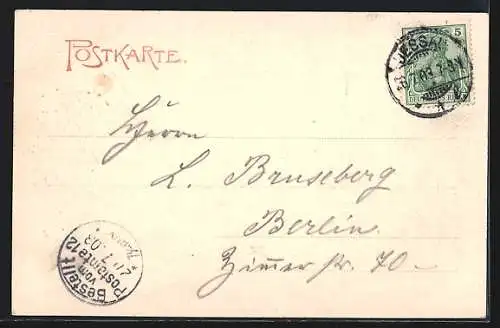 POSTKARTE.
5
JESSEN
7.03.7-8N
Herrn
L. Bruseberg
Berlin.
Zimmer str. 70-
Bestellt
vom
Postamte 12
7.03